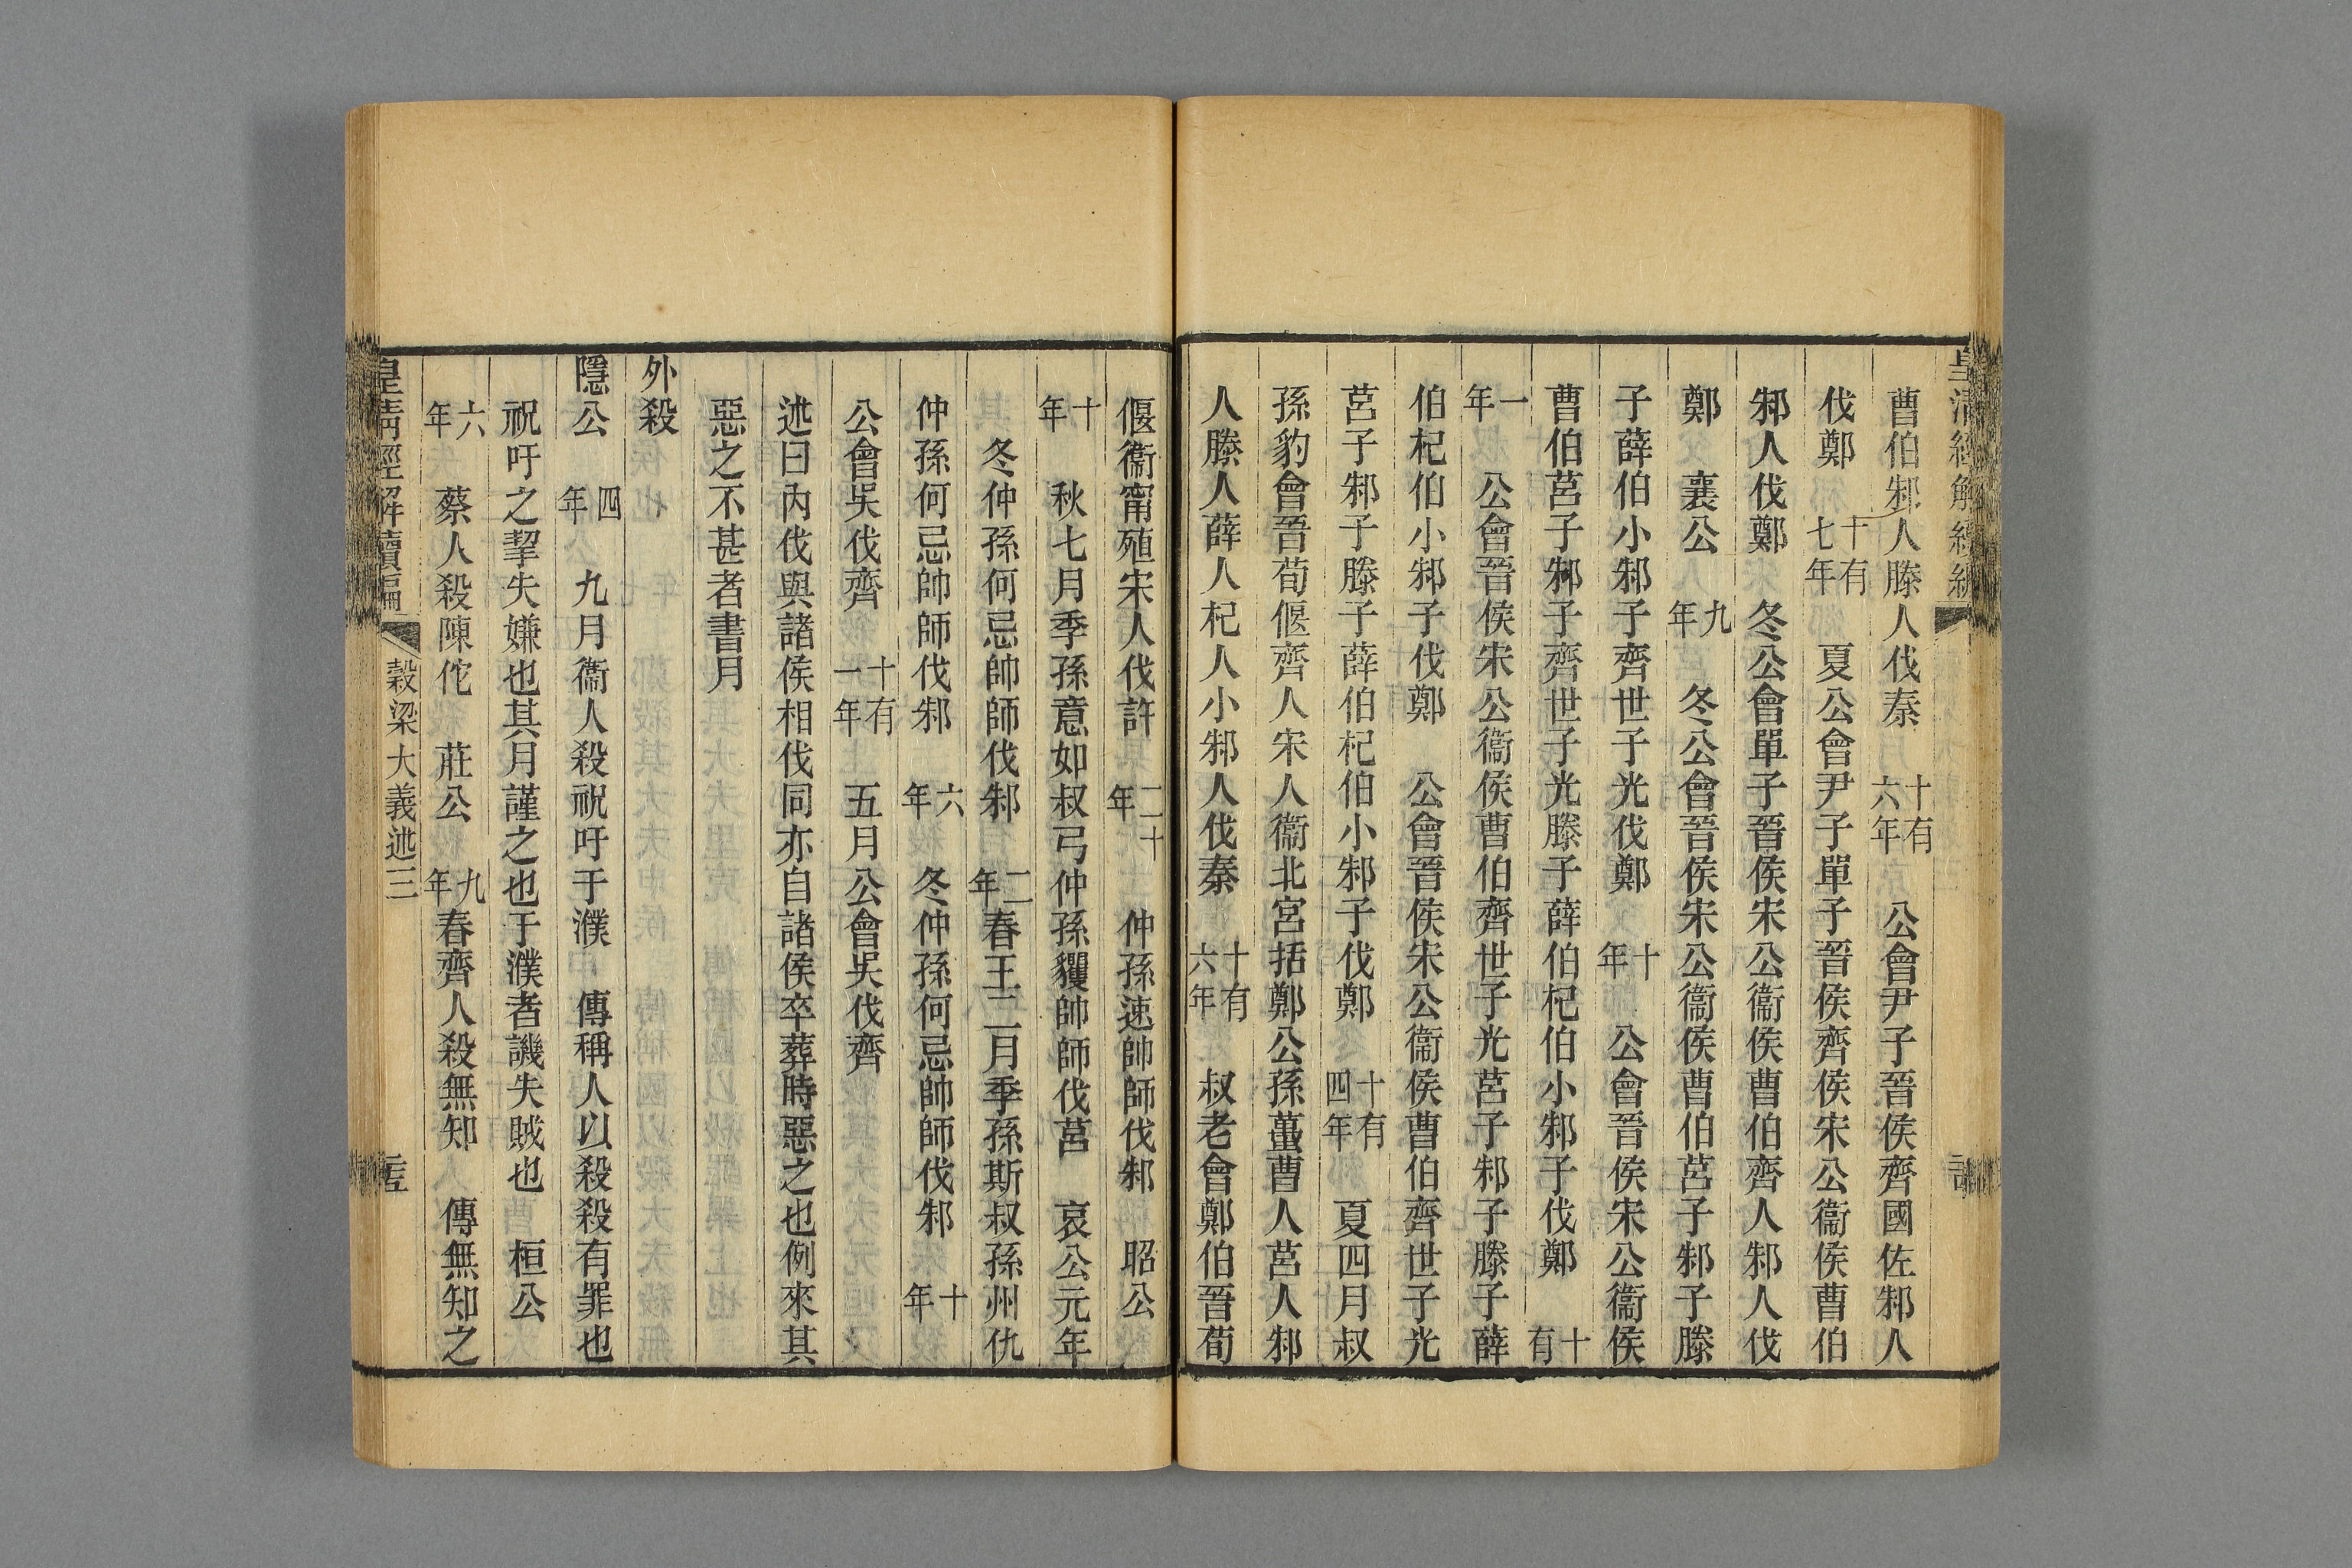 曹伯邾人滕人伐秦 十有六年 公會尹子晉侯齊國佐邾人
伐鄭 十有七年 夏公會尹子單子晉侯齊侯宋公衞侯曹伯
邾人伐鄭 冬公會單子晉侯宋公衞侯曹伯齊人邾人伐
鄭 襄公 九年 冬公會晉侯宋公衞侯曹伯莒子邾子滕
子薛伯小邾子齊世子光伐鄭 十年 公會晉侯宋公衞侯
曹伯莒子邾子齊世子光滕子薛伯杞伯小邾子伐鄭 十有
一年 公會晉侯宋公衞侯曹伯齊世子光莒子邾子滕子薛
伯杞伯小邾子伐鄭 公會晉侯宋公衞侯曹伯齊世子光
莒子邾子滕子薛伯杞伯小邾子伐鄭 十有四年 夏四月叔
孫豹會晉荀偃齊人宋人衞北宮括鄭公孫蠆曹人莒人邾
人滕人薛人杞人小邾人伐秦 十有六年 叔老會鄭伯晉荀
偃衞甯殖宋人伐許 二十年 仲孫速帥師伐邾 昭公
十年 秋七月季孫意如叔弓仲孫貜帥師伐莒 哀公元年
冬仲孫何忌帥師伐邾 二年 春王二月季孫斯叔孫州仇
仲孫何忌帥師伐邾 六年 冬仲孫何忌帥師伐邾 十年
公會吳伐齊 十有一年 五月公會吳伐齊
述曰內伐與諸侯相伐同亦自諸侯卒葬時惡之也例來其
惡之不甚者書月
外殺
隱公 四年 九月衞人殺祝吁于濮 傳稱人以殺殺有罪也
祝吁之挈失嫌也其月謹之也于濮者譏失賊也 桓公
六年 蔡人殺陳佗 莊公 九年 春齊人殺無知 傳無知之
皇清經解續編 穀梁大義述三